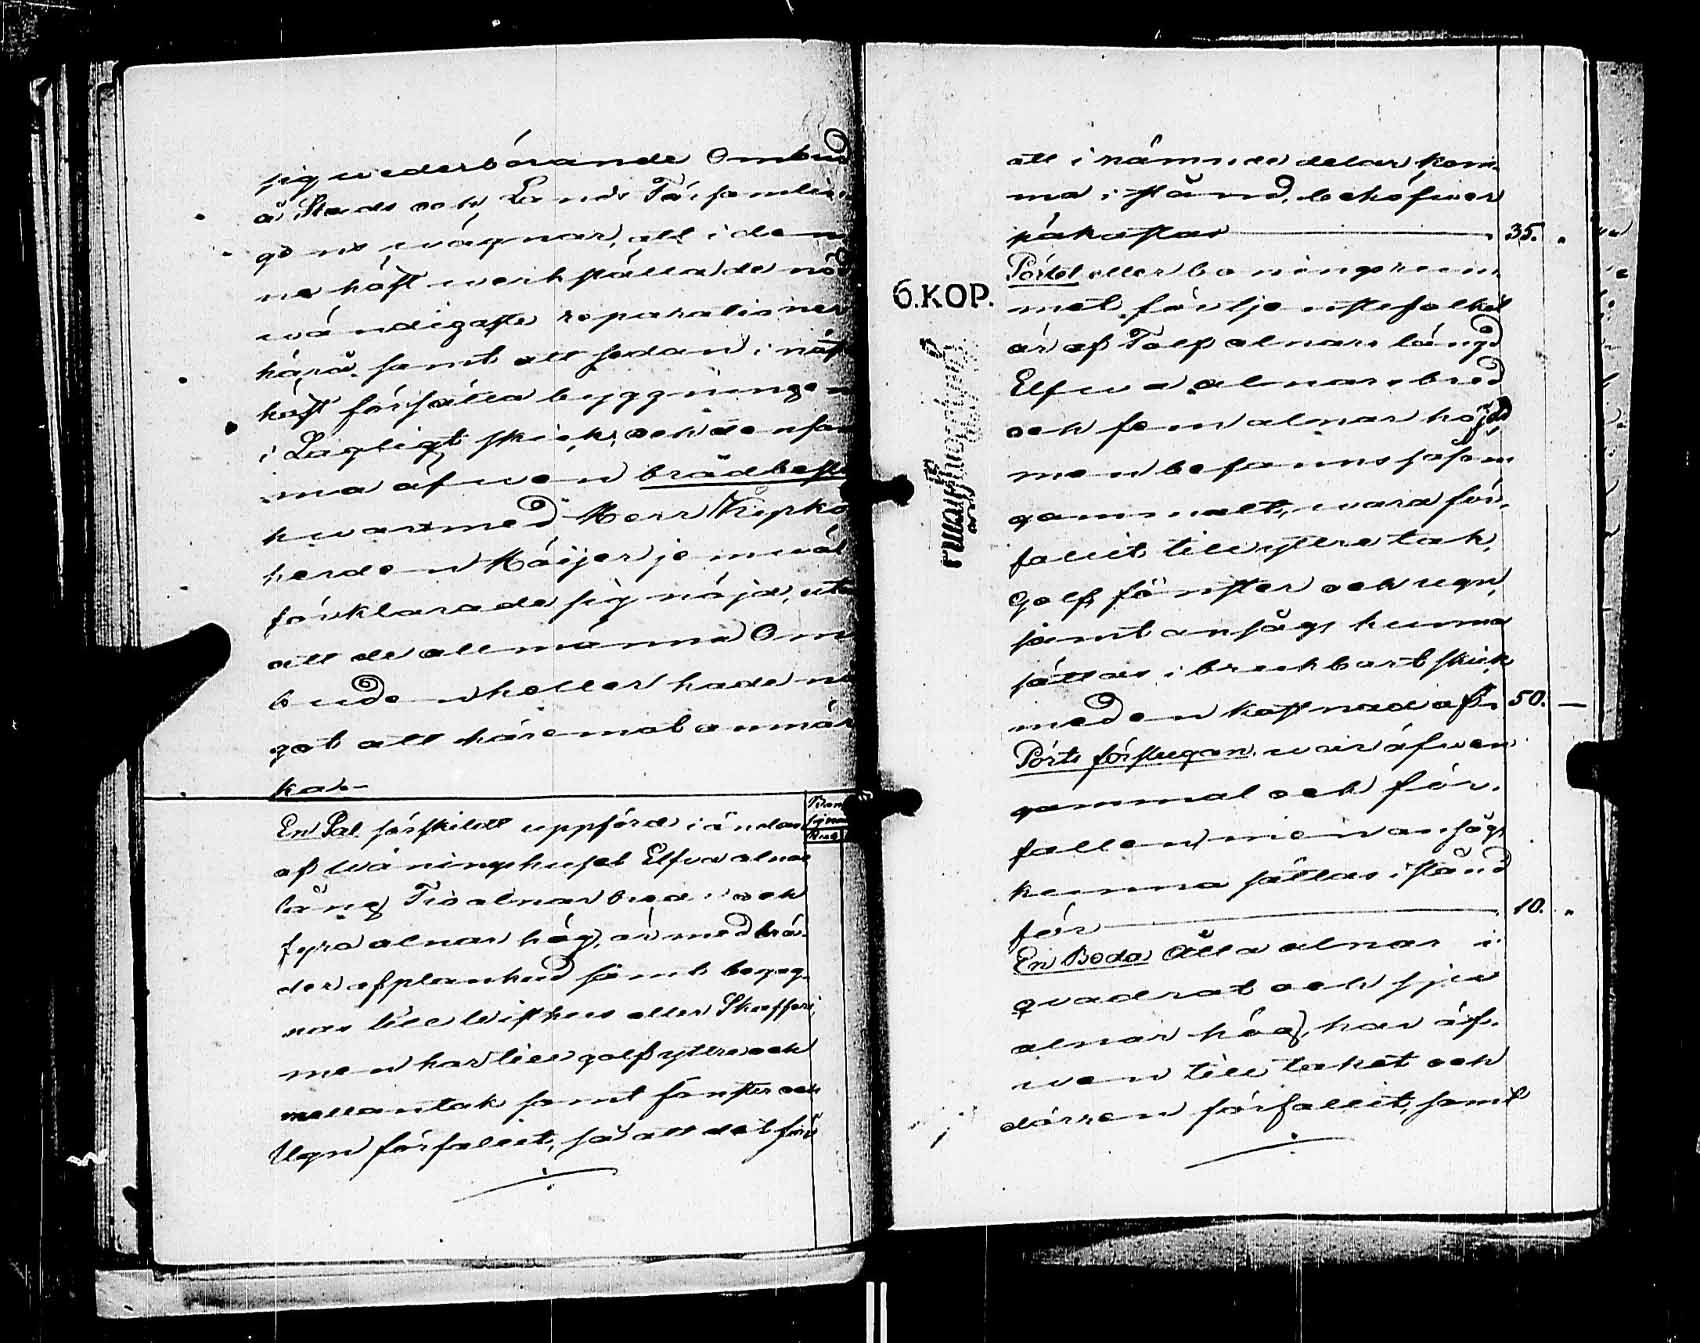 sig wederbörande Ombud
å Stads och Lands Församlin
gens wägnar, att i den
na höst werkställa de nöd
wändigaste reparationer
härå, samt att sedan i näst
höst försätta byggningen
i Lagligt skick, och densam
ma äfwen brädbeslå
hwarmed Herr Kyrko
herden Häijer jemwäl
förklarade sig nöjd, utan
att de allmänna Om
buden heller hade nå
got att häremot anmär
ka.-
En Sal särskildt uppförd i ändan
af Wåningshuset Elfva alnar
lång Tio alnar bred och
fyra alnar hög, är med brä-
der afplankad samt begag-
nas till Wisthus eller Skafferi,
men har till golf yttre och
mellantak samt fönster och
Ugn förfallit, så att det för
att i nämnde delar kom-
ma i stånd, behöfwer
påkostas 35. "
Pörtet eller boningsrum-
met för tjenstefolket
är af Tolf alnars längd
Elfwa alnars bred
och fem alnar högt
men befanns såsom
gammalt, wara för-
fallit till yttre tak,
Golf, fönster och ugn,
samt ansågs kunna
sättas i brukbart skick
med en kostnad af 50. —
Pörts förstugan war äfwen
gammal och för-
fallen men ansågs
kunna sättas i stånd
för 10. "
En Boda Åtta alnar i
quadrat och sju
alnar hög, har äf-
wen till taket och
dörren förfallit, samt
6.KOP.